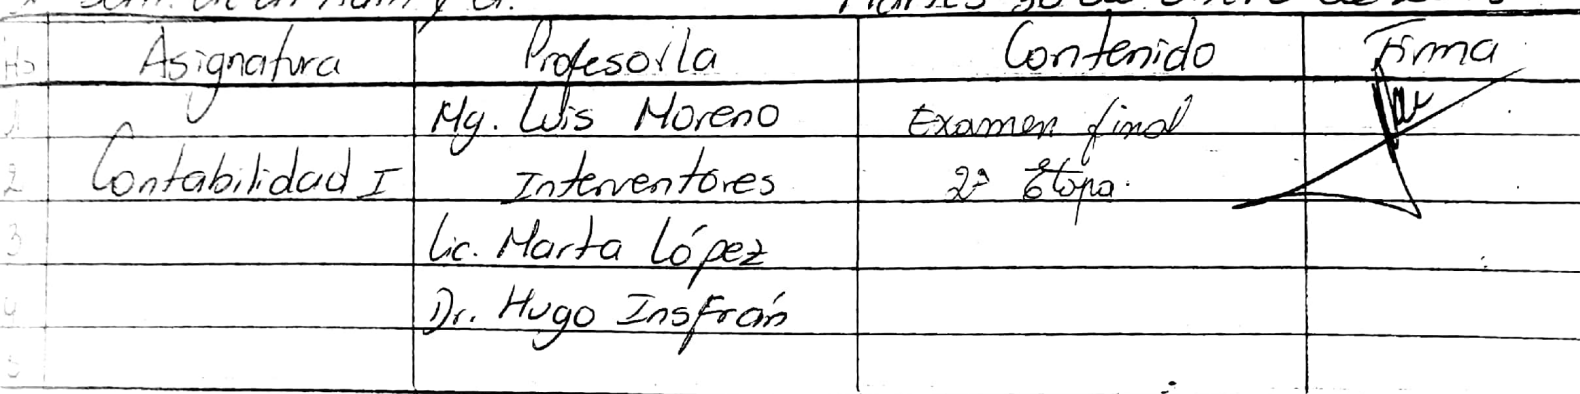 Hs Asignatura Profesor/a Contenido Firma
1 Mg. Luis Moreno Examen final
2 Contabilidad I Interventores 2ª Etapa.
3 Lic. Marta López
4 Dr. Hugo Insfrán
5